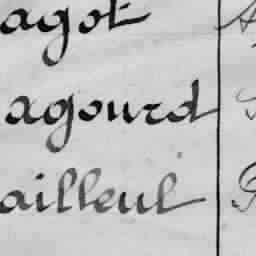 agot
agourd
ailleul